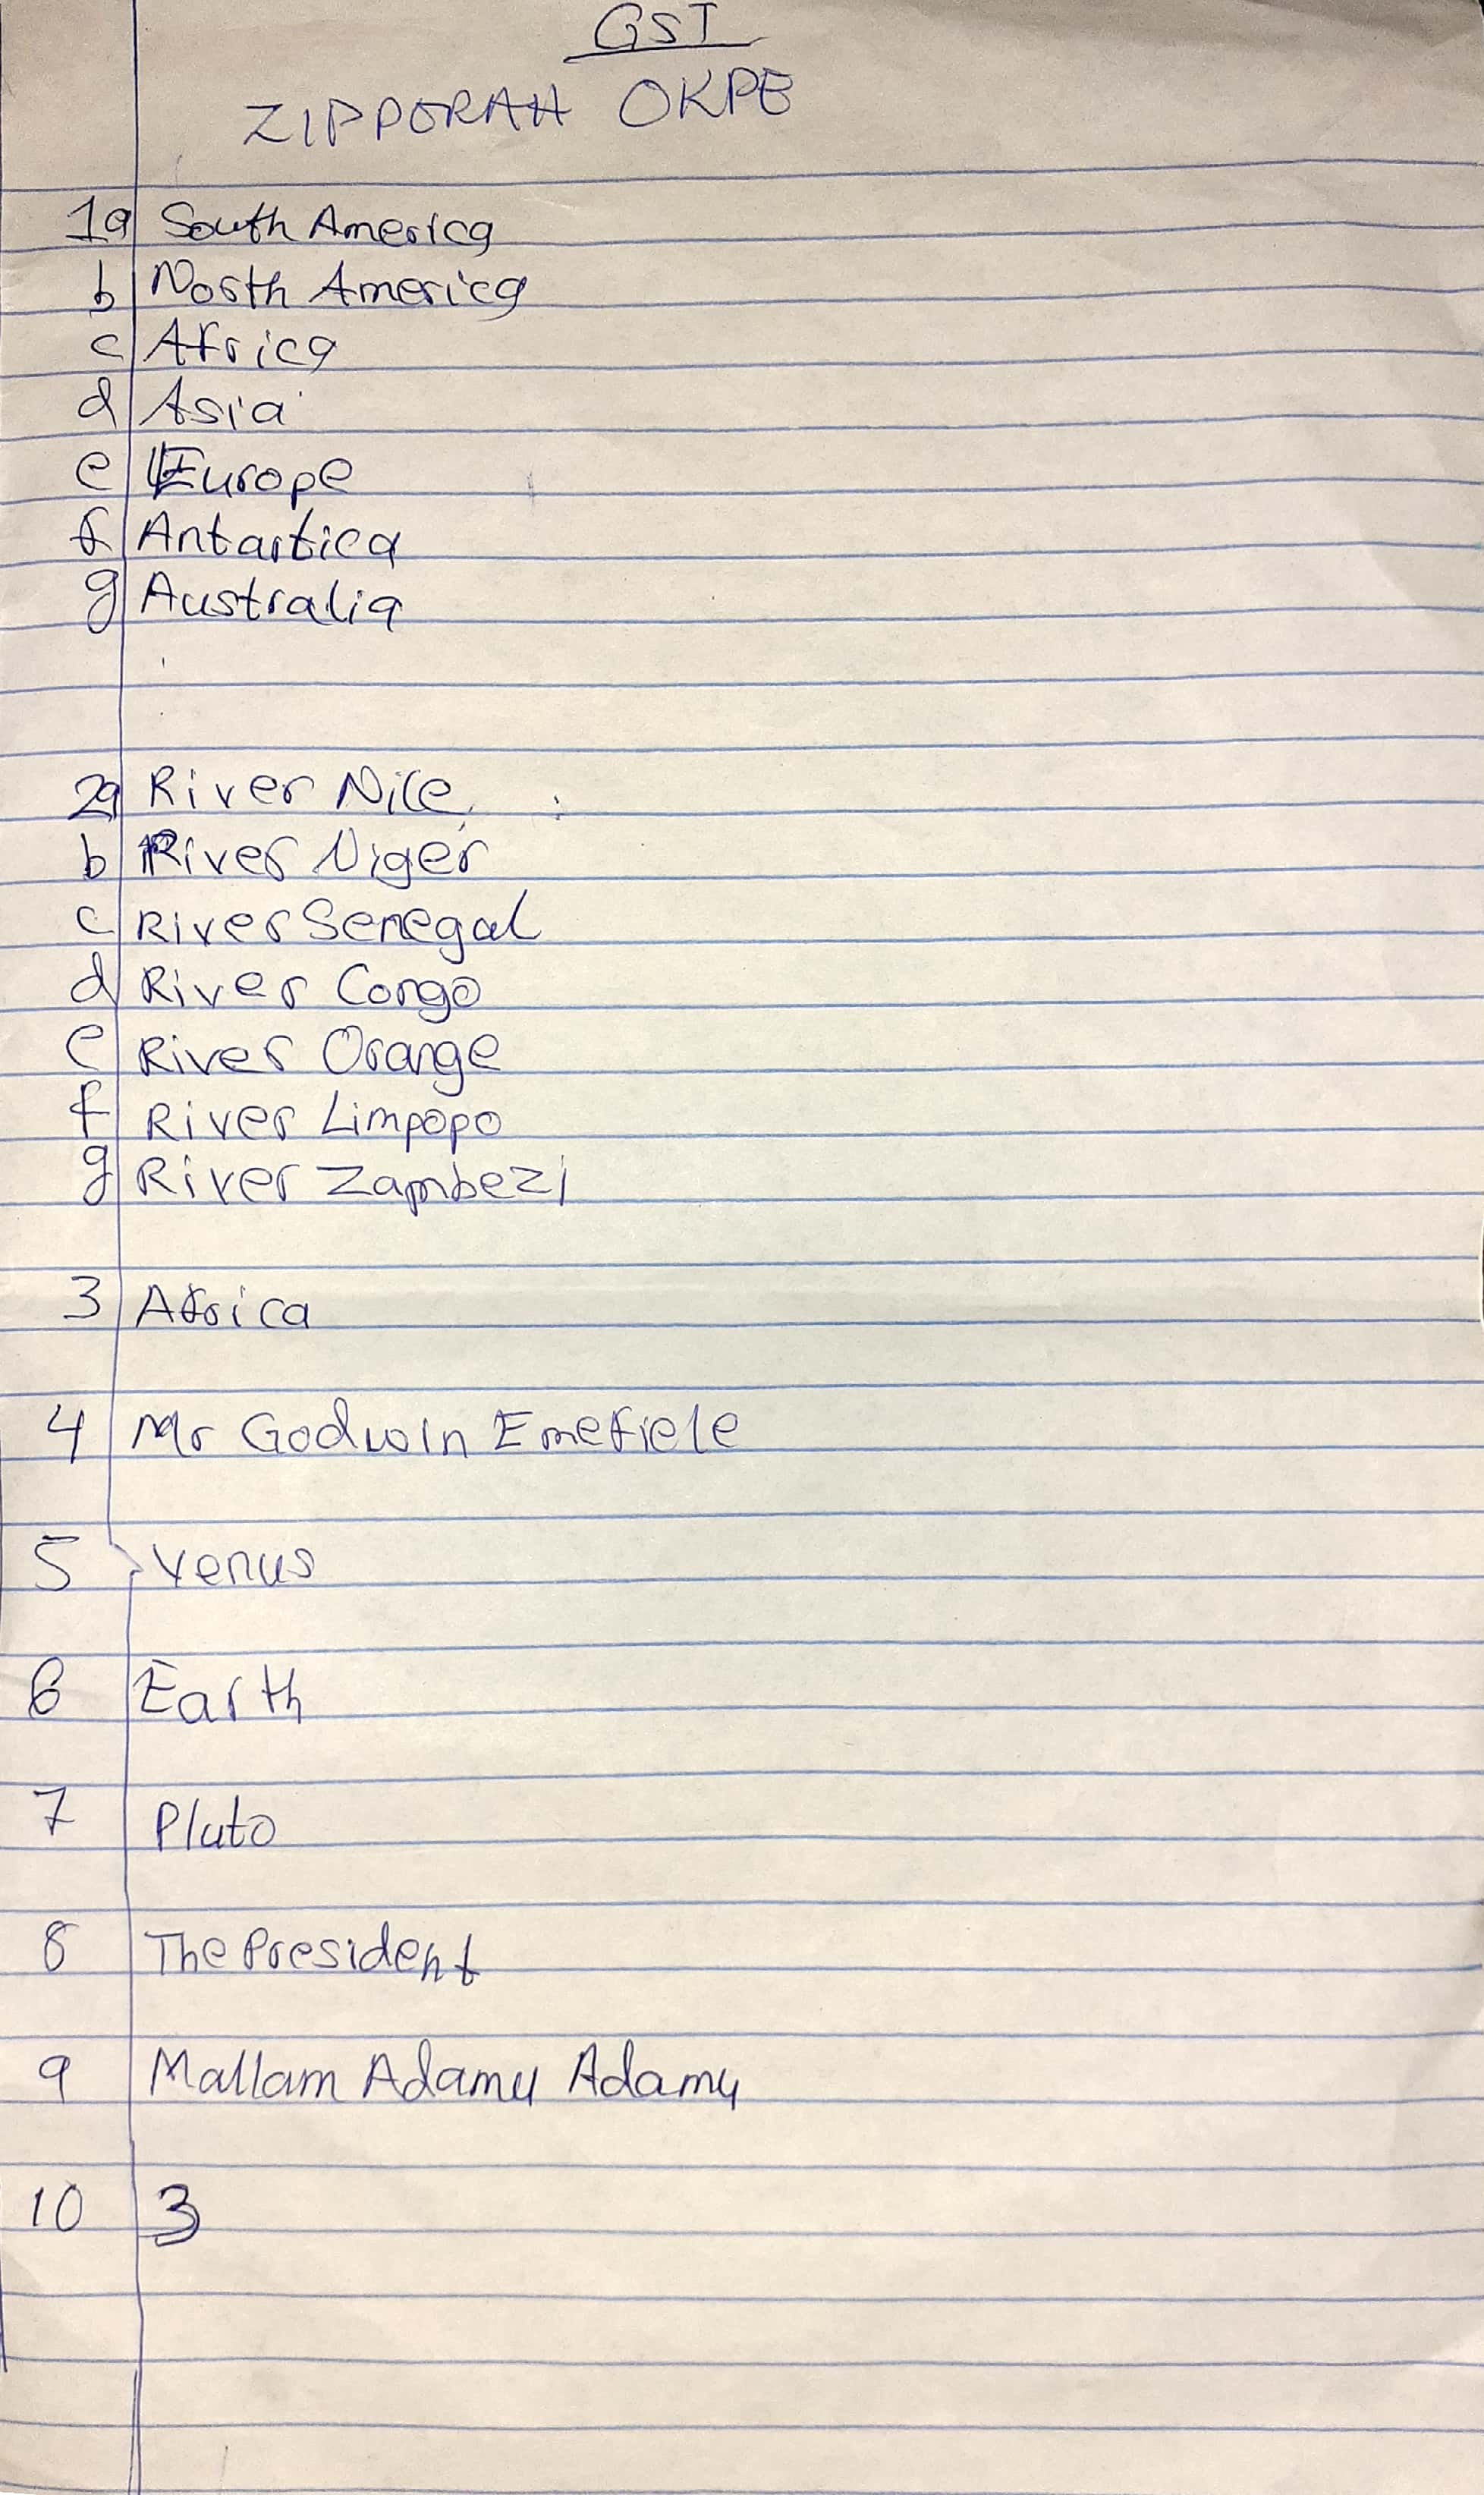 GST
ZIPPORAH OKPE
1a South America
b North America
c Africa
d Asia
e Europe
f Antartica
g Australia
2a River Nile
b River Niger
c River Senegal
d River Congo
e River Orange
f River Limpopo
g River Zambezi
3 Africa
4 Mr Godwin Emefiele
5 Venus
6 Earth
7 Pluto
8 The President
9 Mallam Adamu Adamu
10 3